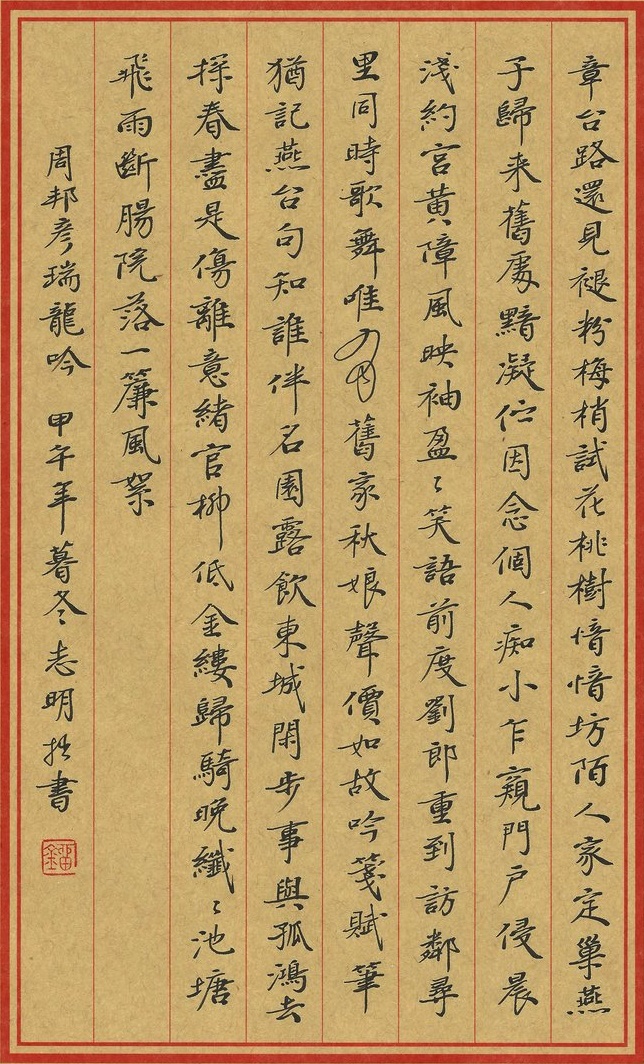 章台路還見褪粉梅梢試花桃樹愔愔坊陌人家定巢燕
子歸来舊處黯凝伫因念個人痴小乍窺門户侵晨
淺約宮黄障風映袖盈〻笑語前度劉郎重到訪鄰尋
里同時歌舞唯有舊家秋娘聲價如故吟箋賦筆
猶記燕台句知誰伴名園露飲東城閑步事與孤鴻去
探春盡是傷離意緒官柳低金縷歸騎晚纖〻池塘
飛雨斷腸院落一簾風絮
周邦彦瑞龍吟 甲午年暮冬志明拙書